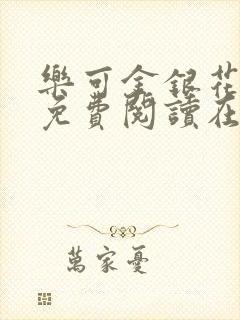 樂可金銀花
免費閱讀在
萬家憂